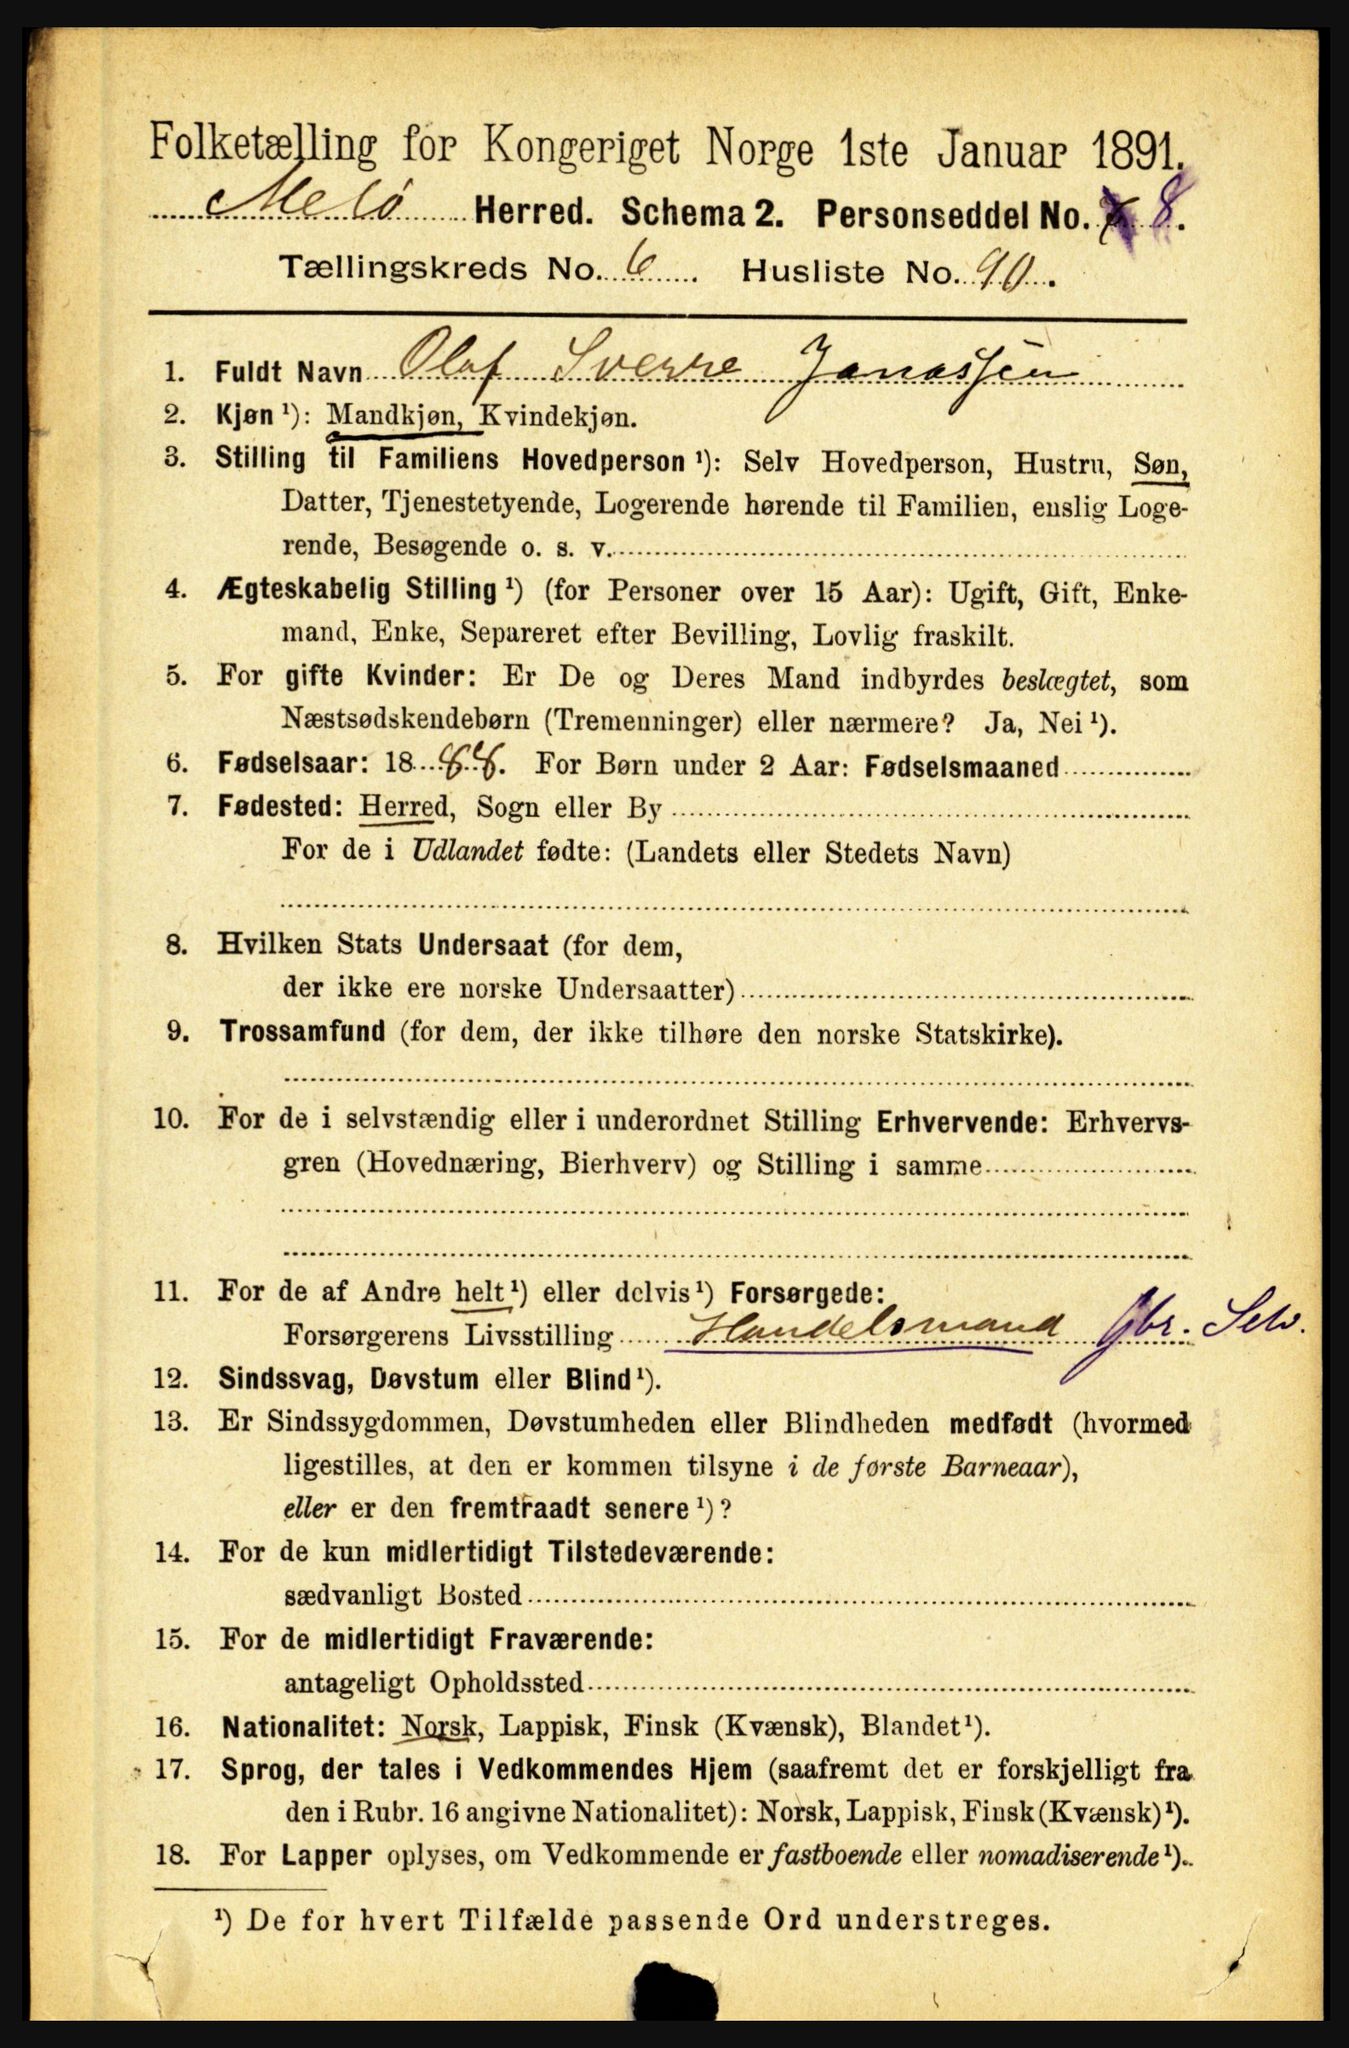 Folketælling for Kongeriget Norge 1ste Januar 1891.
Melø Herred. Schema 2. Personseddel No. 8.
Tællingskreds No. 6. Husliste No. 90.
1. Fuldt Navn Olaf Sverre Jonassen
2. Kjøn ¹): Mandkjøn, Kvindekjøn.
3. Stilling til Familiens Hovedperson ¹): Selv Hovedperson, Hustru, Søn,
Datter, Tjenestetyende, Logerende hørende til Familien, enslig Loge-
rende, Besøgende o. s. v.
4. Ægteskabelig Stilling ¹) (for Personer over 15 Aar): Ugift, Gift, Enke-
mand, Enke, Separeret efter Bevilling, Lovlig fraskilt.
5. For gifte Kvinder: Er De og Deres Mand indbyrdes beslægtet, som
Næstsødskendebørn (Tremenninger) eller nærmere? Ja, Nei ¹).
6. Fødselsaar: 1888. For Børn under 2 Aar: Fødselsmaaned
7. Fødested: Herred, Sogn eller By
For de i Udlandet fødte: (Landets eller Stedets Navn)
8. Hvilken Stats Undersaat (for dem,
der ikke ere norske Undersaatter)
9. Trossamfund (for dem, der ikke tilhøre den norske Statskirke).
10. For de i selvstændig eller i underordnet Stilling Erhvervende: Erhvervs-
gren (Hovednæring, Bierhverv) og Stilling i samme
11. For de af Andre helt ¹) eller delvis ¹) Forsørgede:
Forsørgerens Livsstilling Handelsmand Gbr. Selv.
12. Sindssvag, Døvstum eller Blind ¹).
13. Er Sindssygdommen, Døvstumheden eller Blindheden medfødt (hvormed
ligestilles, at den er kommen tilsyne i de første Barneaar),
eller er den fremtraadt senere ¹)?
14. For de kun midlertidigt Tilstedeværende:
sædvanligt Bosted
15. For de midlertidigt Fraværende:
antageligt Opholdssted
16. Nationalitet: Norsk, Lappisk, Finsk (Kvænsk), Blandet ¹).
17. Sprog, der tales i Vedkommendes Hjem (saafremt det er forskjelligt fra
den i Rubr. 16 angivne Nationalitet): Norsk, Lappisk, Finsk (Kvænsk) ¹).
18. For Lapper oplyses, om Vedkommende er fastboende eller nomadiserende ¹).
¹) De for hvert Tilfælde passende Ord understreges.